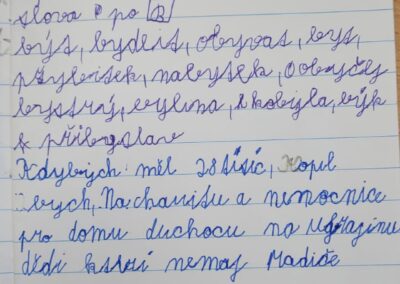 slova po B
být, bydlit, obyvat, byt,
přybitek, nabytek, obyčej
bystrý, bylina, kobyla, býk
k přibyslav
Kdybych měl tisíc, Kopil
bych, Na charitu a nemocnice
pro domu duchocu na Ugrajinu
dědi kteri nemaj Radiče